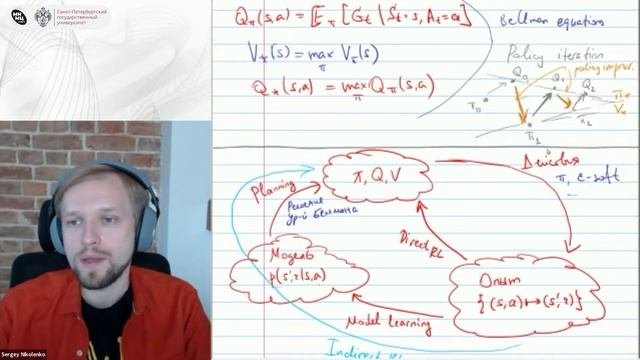 Санкт-Петербургский
государственный
университет
Q_π(s,a) = E_π [G_t | S_t = s, A_t = a]
Bellman equations
V_*(s) = max_π V_π(s)
Q_*(s,a) = max_π Q_π(s,a)
Policy iteration
policy improv.
Q_0
Q_1
Q_2
π_0
π_1
π_2
π_*
V_*
π, Q, V
π, ε-soft
Planning
Решение
ур-й Беллмана
Модель
p(s',r|s,a)
Direct RL
Опыт
{(s,a) ↦ (s',r)}
Model learning
Indirect RL
Sergey Nikolenko